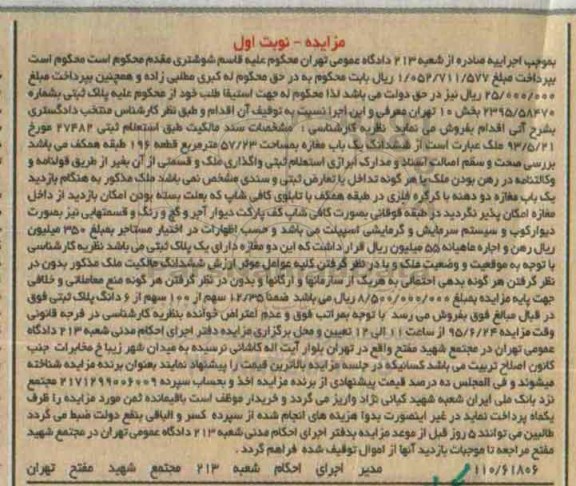 مزایده - نوبت اول
بموجب اجراییه صادره از شعبه ۲۱۳ دادگاه عمومی تهران محکوم علیه قاسم شوشتری مقدم محکوم است محکوم است
بپرداخت مبلغ ۱/۰۵۲/۷۱۱/۵۷۷ ریال بابت محکوم به در حق محکوم له کبری مطلبی زاده و همچنین بپرداخت مبلغ
۲۵/۰۰۰/۰۰۰ ریال نیز در حق دولت می باشد لذا محکوم له جهت استیفا طلب خود از محکوم علیه پلاک ثبتی بشماره
۲۳۹۵/۵۸۴۷۰ بخش ۱۰ تهران معرفی و این اجرا نسبت به توقیف آن اقدام و طبق نظر کارشناس منتخب دادگستری
بشرح آتی اقدام بفروش می نماید نظریه کارشناسی : مشخصات سند مالکیت طبق استعلام ثبتی ۲۷۴۸۲ مورخ
۹۳/۵/۲۱ ملک عبارت است از ششدانگ یک باب مغازه بمساحت ۵۷/۲۳ مترمربع قطعه ۱۹۶ طبقه همکف می باشد
بررسی صحت و سقم اصالت اسناد و مدارک ابرازی استعلام ثبتی واگذاری ملک و قسمتی از آن بغیر از طریق قولنامه و
وکالتنامه در رهن بودن ملک یا هر گونه تداخل یا تعارض ثبتی و سندی مشخص نمی باشد ملک مذکور به هنگام بازدید
یک باب مغازه دو دهنه با کرکره فلزی در طبقه همکف با تابلوی کافی شاپ که بعلت بسته بودن امکان بازدید از داخل
مغازه امکان پذیر نگردید در طبقه فوقانی بصورت کافی شاپ کف پارکت دیوار آجر و گچ و رنگ و قسمتهایی نیز بصورت
دیوارکوب و سیستم سرمایش و گرمایشی اسپیلت می باشد و حسب اظهارات در اختیار مستاجر بمبلغ ۳۵۰ میلیون
ریال رهن و اجاره ماهیانه ۵۵ میلیون ریال قرار داشت که این دو مغازه دارای یک پلاک ثبتی می باشد نظریه کارشناسی
با توجه به موقعیت و وضعیت ملک و با در نظر گرفتن کلیه عوامل موثر ارزش ششدانگ مالکیت ملک مذکور بدون در
نظر گرفتن هر گونه بدهی احتمالی به هریک از سازمانها و ارگانها و بدون در نظر گرفتن هر گونه منع معاملاتی و خلافی
جهت پایه مزایده بمبلغ ۸/۵۰۰/۰۰۰/۰۰۰ ریال می باشد ضمنا ۱۲/۳۵ سهم از ۱۰۰ سهم از ۶ دانگ پلاک ثبتی فوق
در قبال مبالغ فوق بفروش می رسد با توجه بمراتب فوق و عدم اعتراض خوانده بنظریه کارشناسی در فرجه قانونی
وقت مزایده ۹۵/۶/۲۴ از ساعت ۱۱ الی ۱۲ تعیین و محل برگزاری مزایده دفتر اجرای احکام مدنی شعبه ۲۱۳ دادگاه
عمومی تهران در مجتمع شهید مفتح واقع در تهران بلوار آیت اله کاشانی نرسیده به میدان شهر زیبا خ مخابرات جنب
کانون اصلاح تربیت می باشد کسانیکه در جلسه مزایده بالاترین قیمت را پیشنهاد نمایند بعنوان برنده مزایده شناخته
میشوند و فی المجلس ده درصد قیمت پیشنهادی از برنده مزایده اخذ و بحساب سپرده ۲۱۷۱۲۹۹۰۰۶۰۰۹ مجتمع
نزد بانک ملی ایران شعبه شهید کیانی نژاد واریز می گردد و خریدار موظف است باقیمانده ثمن مورد مزایده را ظرف
یکماه پرداخت نماید در غیر اینصورت بدوا هزینه های انجام شده از سپرده کسر و الباقی بنفع دولت ضبط می گردد
طالبین می توانند ۵ روز قبل از موعد مزایده بدفتر اجرای احکام مدنی شعبه ۲۱۳ دادگاه عمومی تهران در مجتمع شهید
مفتح مراجعه تا موجبات بازدید آنها از اموال توقیف شده فراهم گردد .
۱۱۰/۶۱۸۰۶ مدیر اجرای احکام شعبه ۲۱۳ مجتمع شهید مفتح تهران